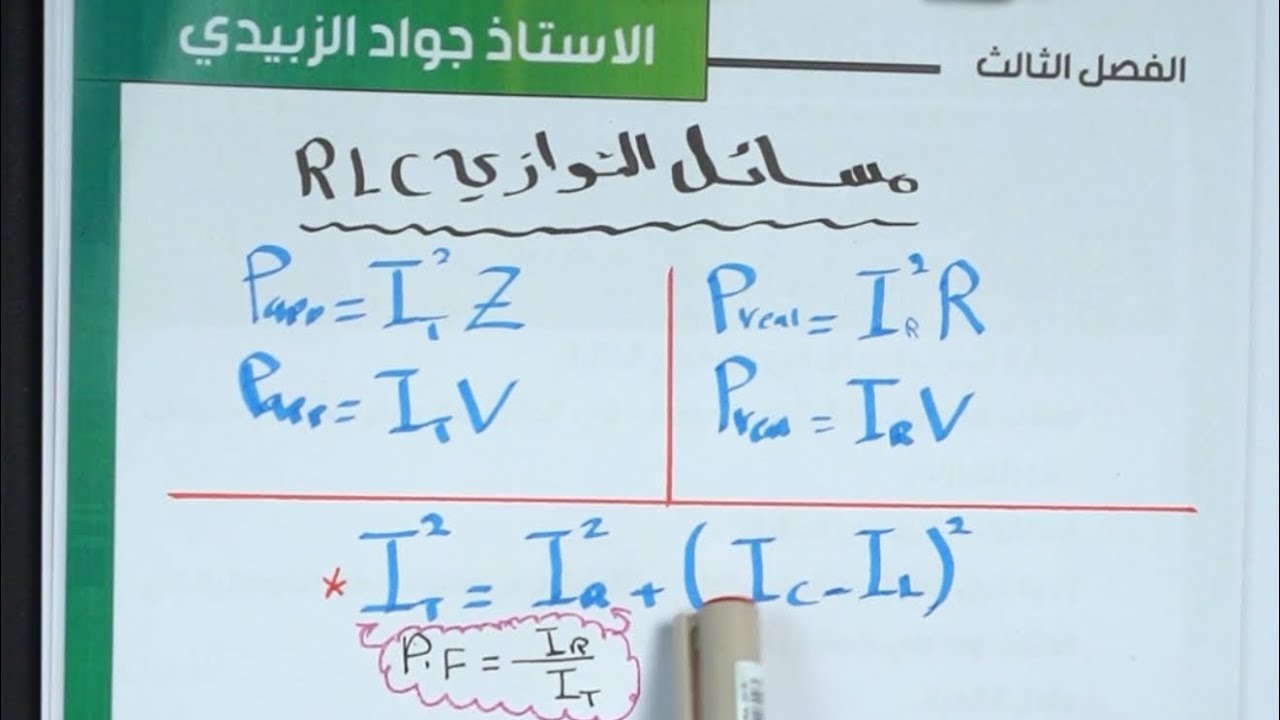 الاستاذ جواد الزبيدي
الفصل الثالث
مسائل التوازي RLC
Papp = I_T² Z
Preal = I_R² R
Papp = I_T V
Preal = I_R V
* I_T² = I_R² + (I_C - I_L)²
P.F = I_R / I_T